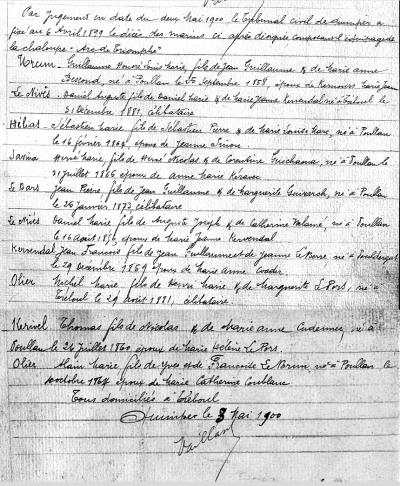 Par jugement en date du deux Mai 1900 le tribunal civil de Quimper a
fixé au 6 Avril 1899 le décès des marins ci après désignés composant l'équipage de
la chaloupe "Arc de Triomphe"
Guillaume Honoré Louis Marie, fils de Jean Guillaume & de Marie Anne
né à Poullan le 25 Septembre 1858, époux de Marie Jeanne
Le Nivès Daniel Auguste fils de Daniel Marie & de Marie Jeanne Kervendal né à Tréboul le
31 Décembre 1881, célibataire
Hélias Sébastien Marie fils de Sébastien Pierre & de Marie Louise né à Poullan
le 16 février 1864, époux de Jeanne
Hervé Marie, fils de Hervé Nicolas & de Corentine né à Poullan le
31 juillet 1865 époux de Anne Marie
Le Bars Jean Pierre fils de Jean Guillaume & de Marguerite né à Poullan
le 26 janvier 1873 célibataire
Le Nivès Daniel Marie fils de Auguste Joseph & de Catherine né à Poullan
le 16 août époux de Marie Jeanne Kervendal
Kervendal Jean François fils de Jean Guillaume et de Jeanne Le Berre né à
le 29 Décembre 1869 époux de Marie Anne
Olier Michel Marie fils de Henri Marie & de Marguerite Le Pors, né à
Tréboul le 29 Août 1881, célibataire.
Thomas fils de Nicolas & de Marie Anne né à
Poullan le 26 Juillet 1860 époux de Marie Hélène Le Pors.
Olier Alain Marie fils de Yves et de Françoise Le Brun né à Poullan le
octobre 1864 époux de Marie Catherine
Tous domiciliés à Tréboul
Quimper le 3 Mai 1900
Vaillant